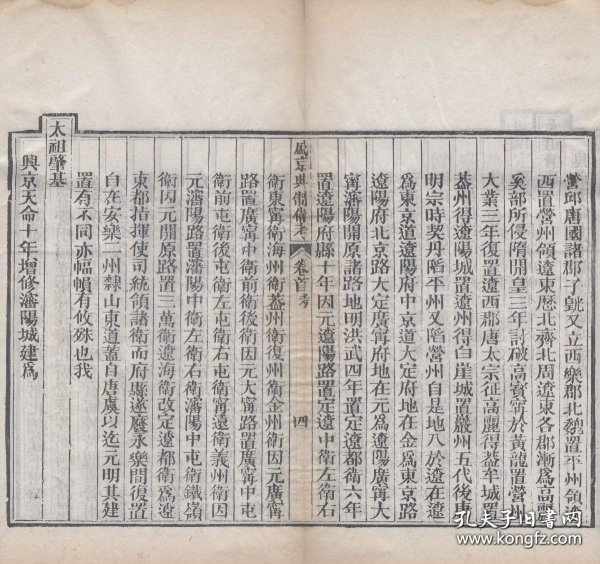 營邱唐國諸郡子皝又立西樂郡北魏置平州領遼
西置營州領遼東歷北齊北周遼東各郡漸爲高麗
奚部所侵隋開皇三年討破高寶寧於黃龍置營州
大業三年復置遼西郡唐太宗征高麗得葢牟城置
葢州得遼城置遼州得白崖城置巖州五代後唐
明宗時契丹䧟平州又䧟營州自是地入於遼在遼
爲東京道遼陽府中京道大定府地在金爲東京路
遼陽府北京路大定廣寧府地在元爲遼陽廣寧大
寧瀋陽開原諸路地明洪武四年置定遼都衛六年
置遼陽府縣十年因元遼陽路置定遼中衛左衛右
盛京典制備考
卷首考
四
衛東寧衛海州衛葢州衛復州衛金州衛因元廣寧
路置廣寧中衛前衛後衛因元大寧路置廣寧中屯
衛前屯衛後屯衛左屯衛右屯衛寧遠衛義州衛因
元瀋陽路置瀋陽中衛左衛右衛瀋陽中屯衛鐵嶺
衛因元開原路置三萬衛遼海衛改定遼都衛爲遼
東都指揮使司統領諸衛而府縣遂廢永樂間復置
自在安樂二州隸山東道蓋自唐虞以迄元明其建
置有不同亦幅幀有攸殊也我
太祖肇基
興京天命十年增修瀋陽城建爲
孔夫子旧書网
www.kongfz.com